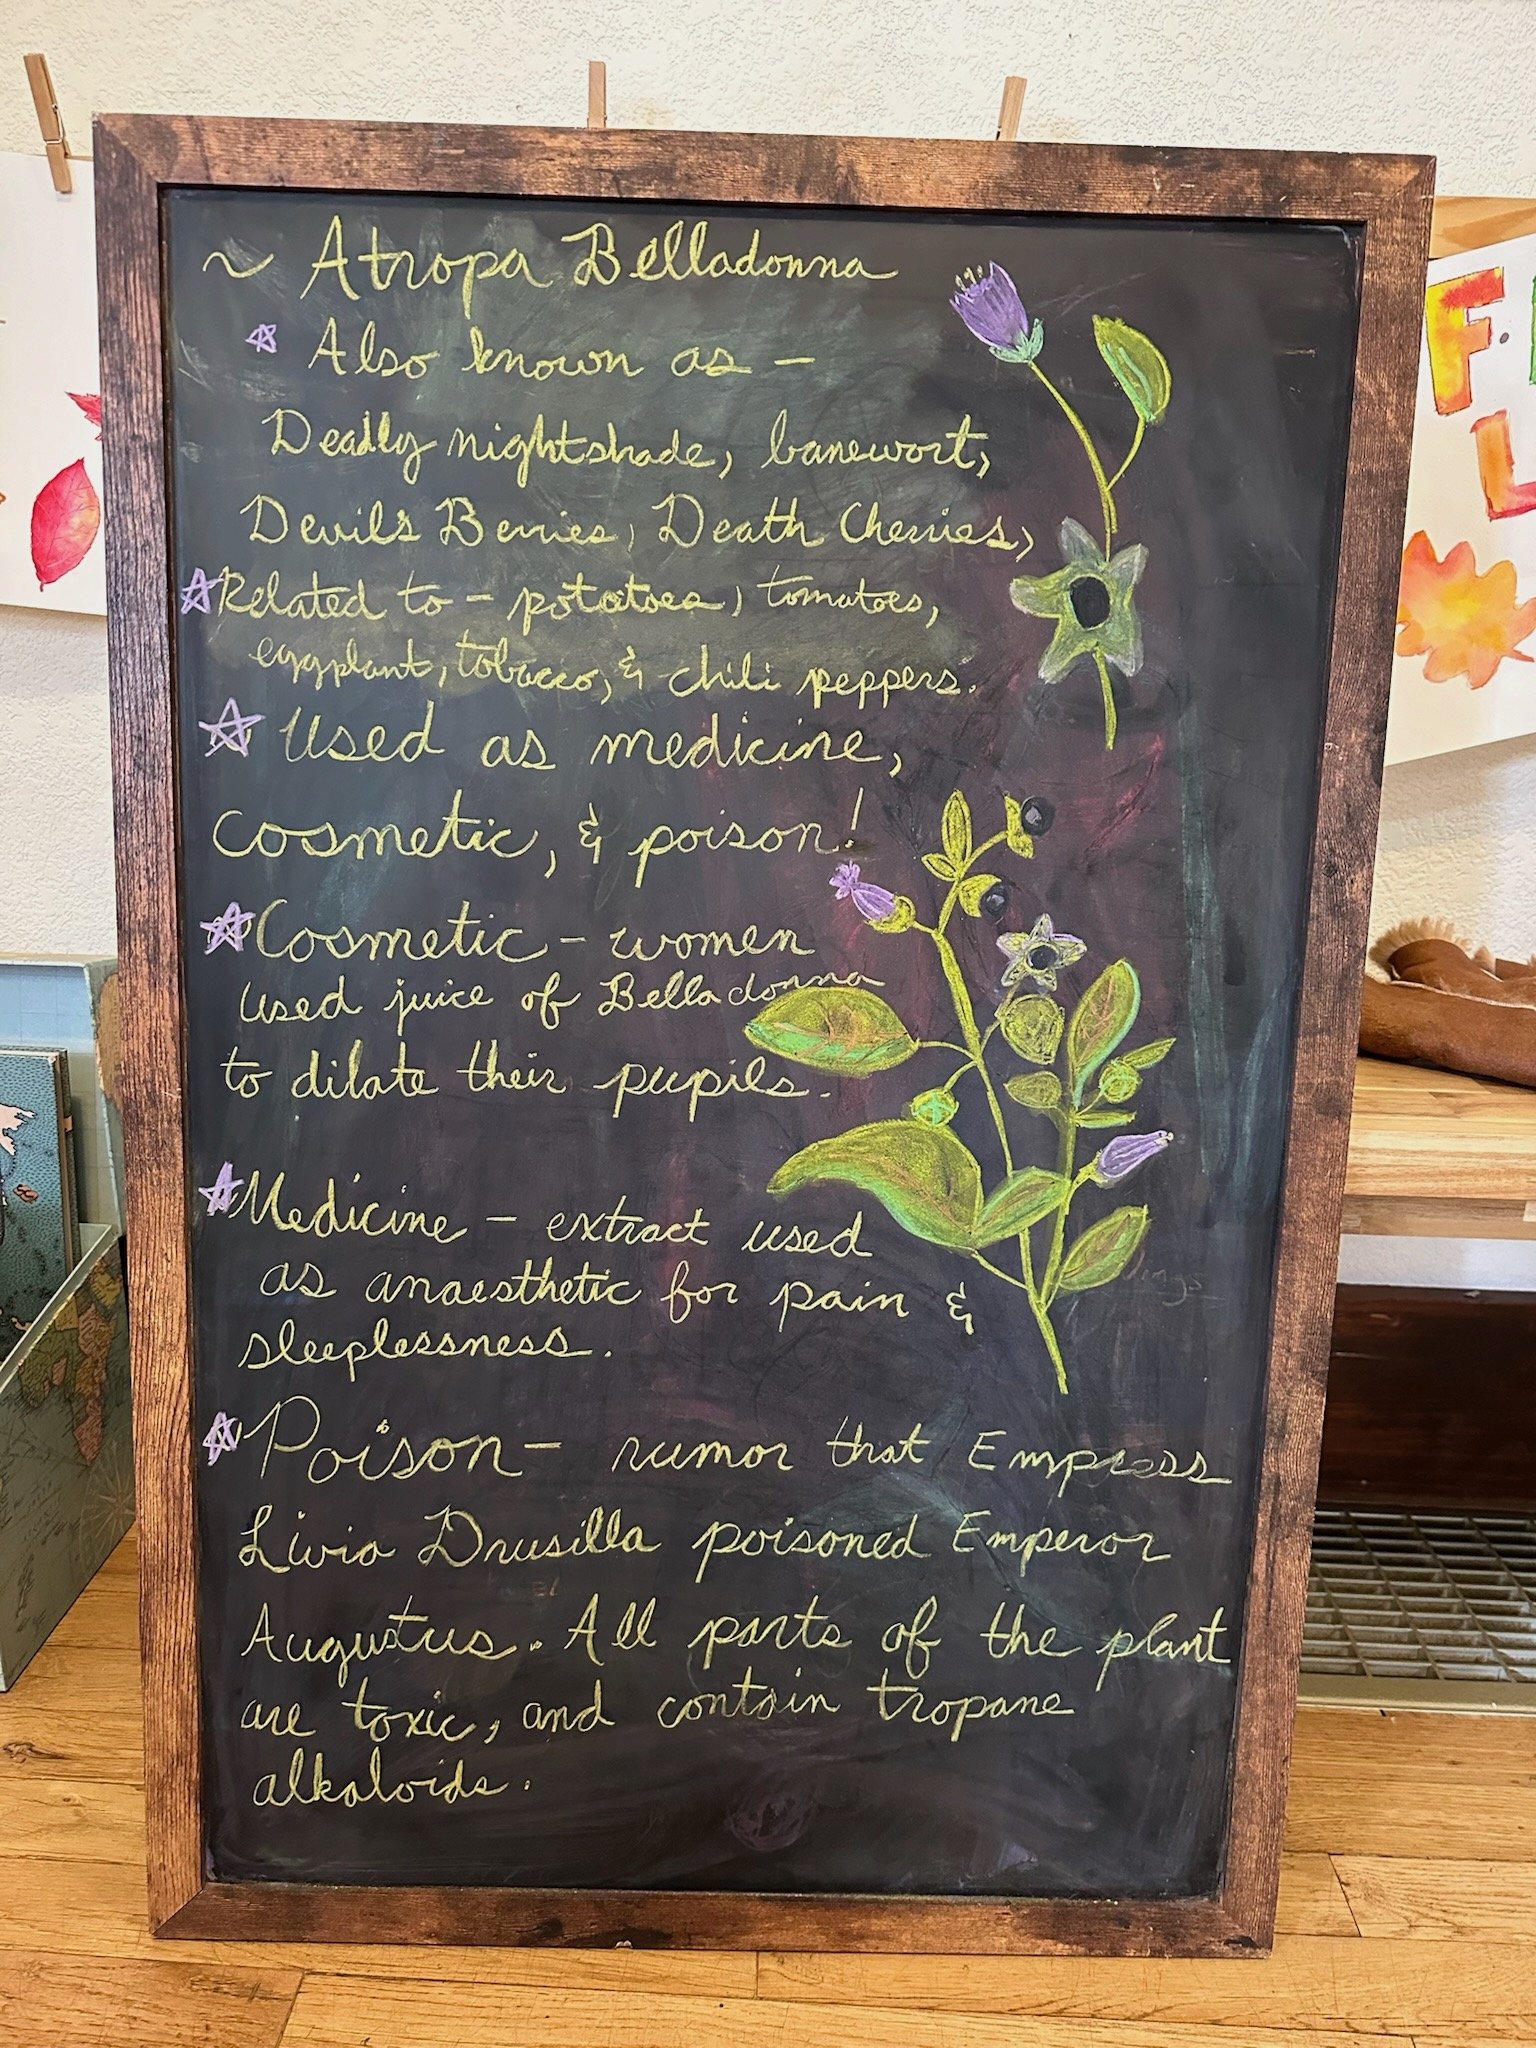 ~ Atropa Belladonna
Also known as –
Deadly nightshade, banewort,
Devil's Berries, Death Cherries,
Related to – potatoes, tomatoes,
eggplant, tobacco, & chili peppers.
Used as medicine,
cosmetic, & poison!
Cosmetic – women
used juice of Belladonna
to dilate their pupils.
Medicine – extract used
as anaesthetic for pain &
sleeplessness.
Poison – rumor that Empress
Livia Drusilla poisoned Emperor
Augustus. All parts of the plant
are toxic, and contain tropane
alkaloids.
F
L